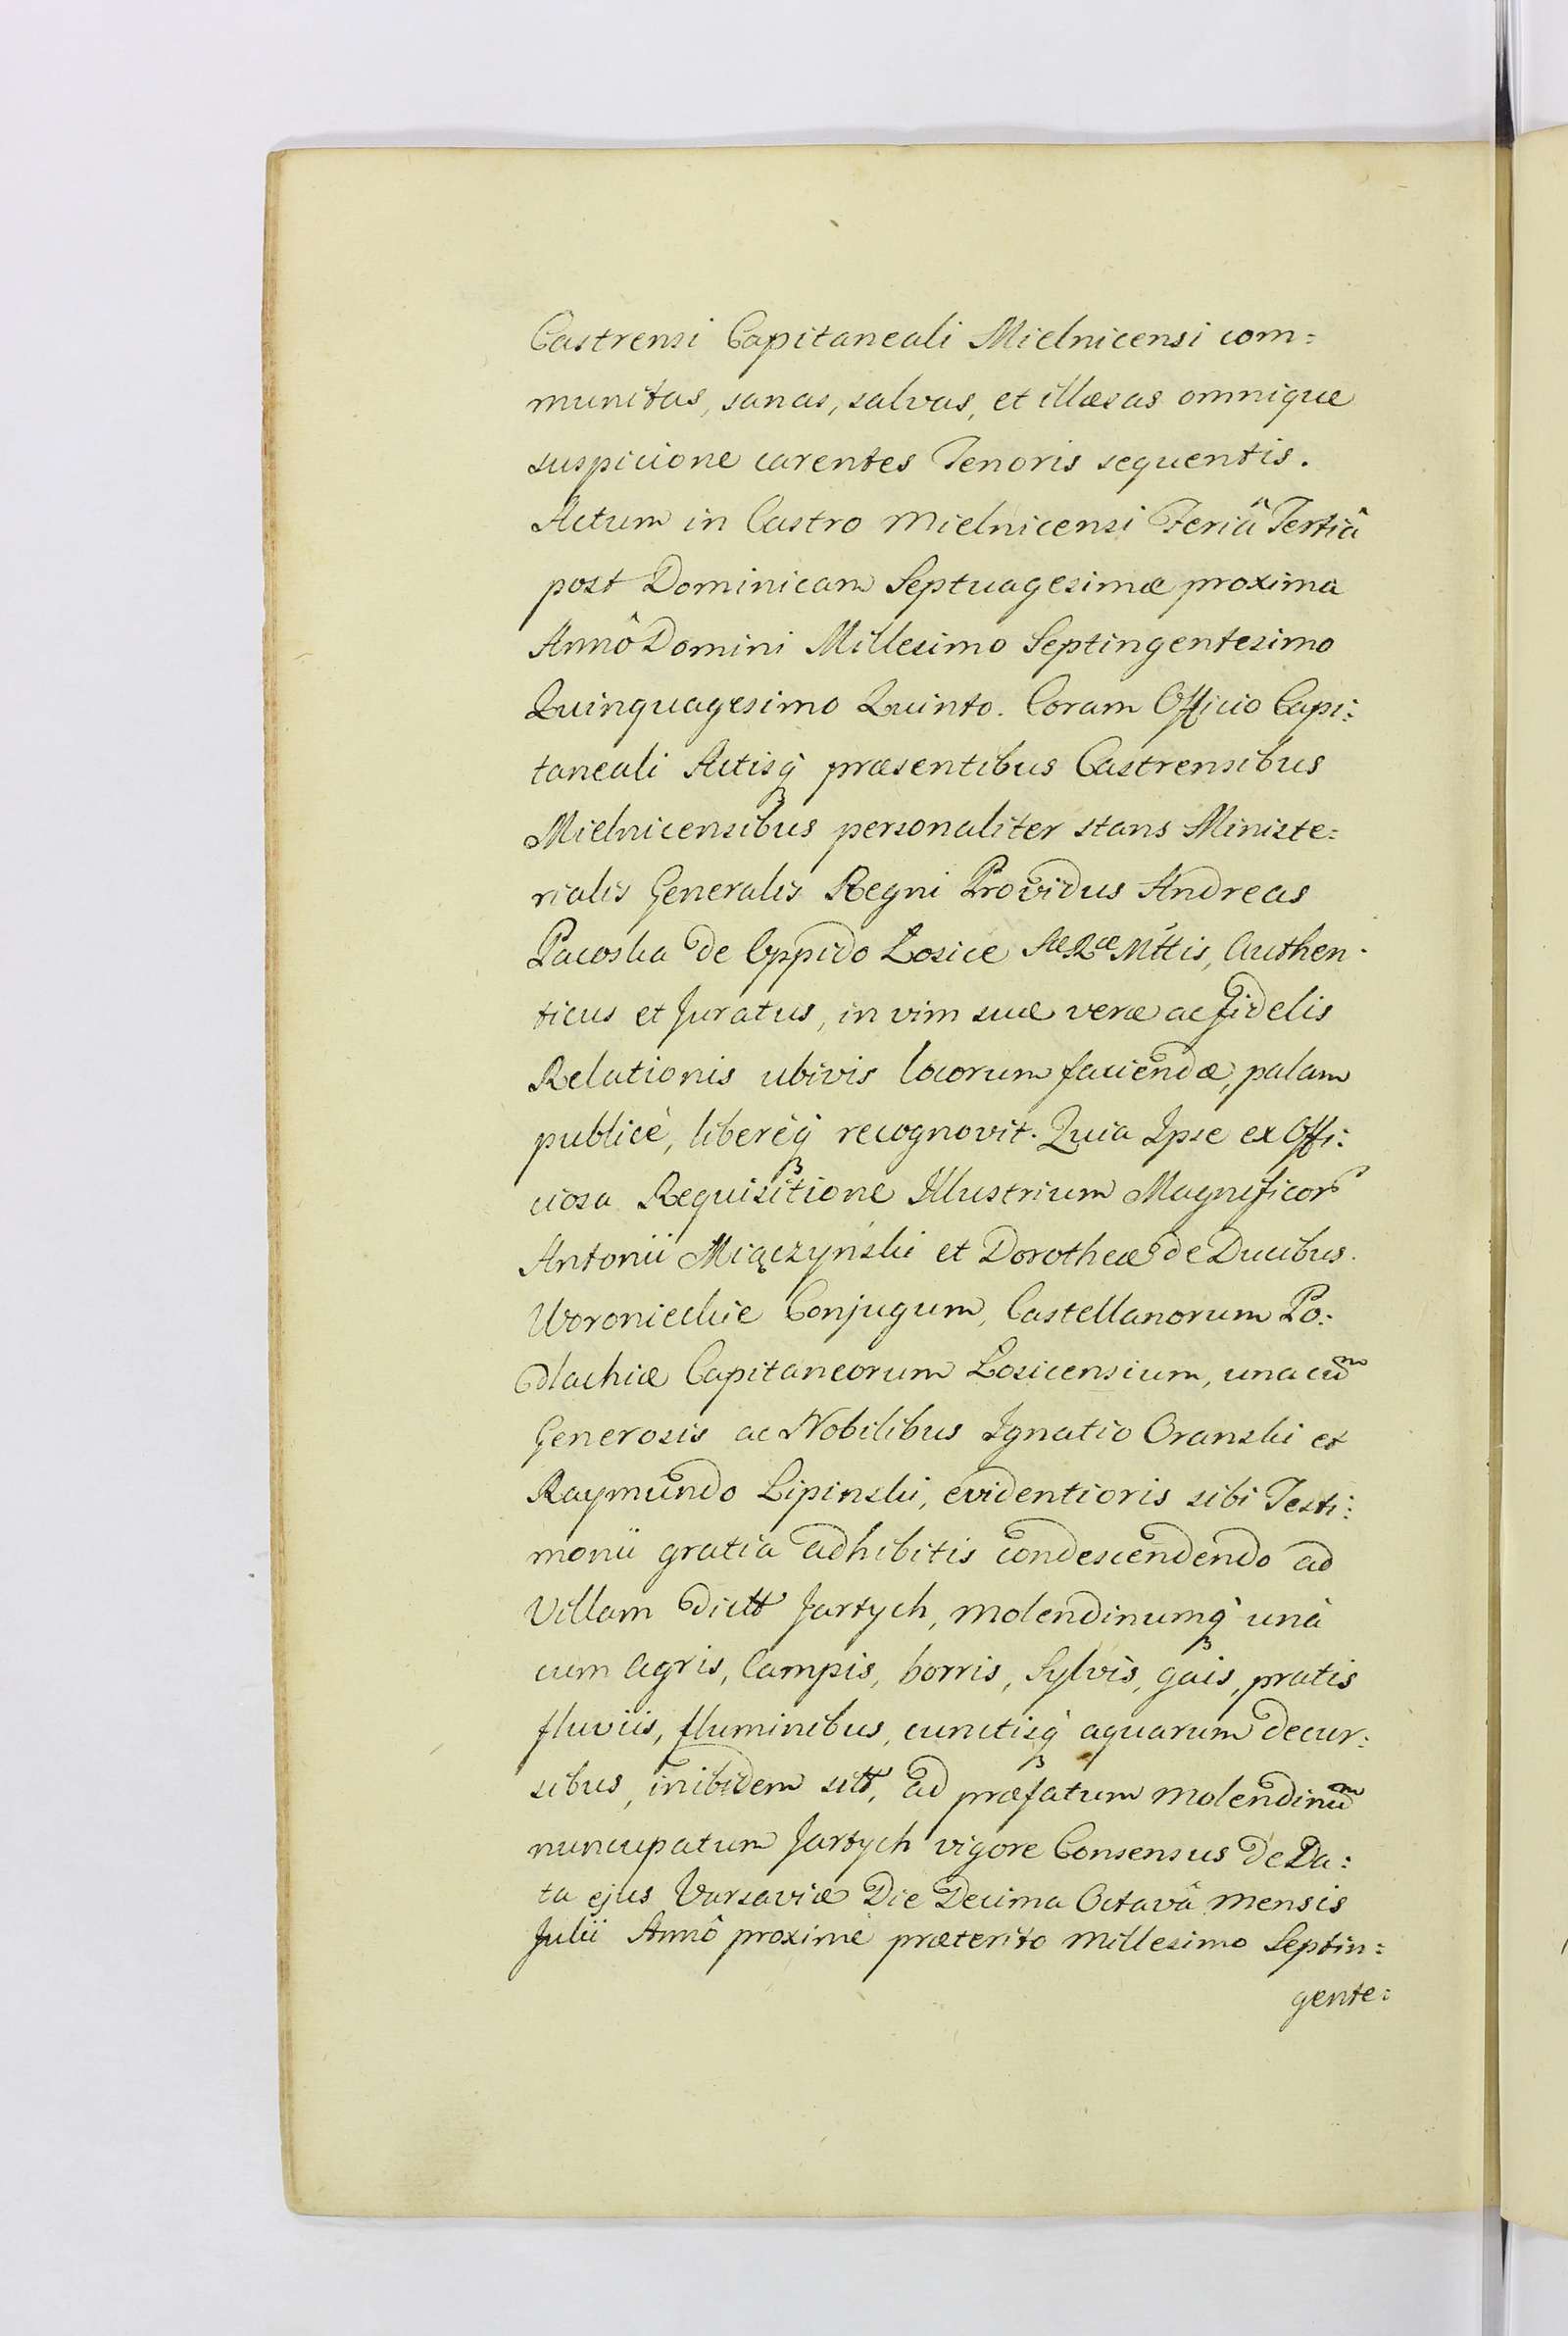 Castrensi Capitaneali Mielnicensi com=
munitas, sanas, salvas, et illæsas omnique
suspicione carentes Tenoris sequentis.
Actum in Castro Mielnicensi Feriâ Tertiâ
post Dominicam Septuagesimæ proxima
Annô Domini Millesimo Septingentesimo
Quinquagesimo Quinto. Coram Officio Capi=
taneali Actisq́ præsentibus Castrensibus
Mielnicensibus personaliter stans Ministe=
rialis Generalis Regni Providus Andreas
Pacoska de Oppido Łosice Sæ Ræ Mttis, Authen=
ticus et Juratus, in vim suæ veræ ac fidelis
Relationis ubivis locorum faciendæ, palam
publicè, liberèq́ recognovit. Quia Ipse ex Offi=
ciosa Requisitione Illustrium Magnificor
Antonii Miączyński et Dorotheæ de Ducibus
Woronieckie Conjugum, Castellanorum Po=
dlachiæ Capitaneorum Łosicensium, una cum
Generosis ac Nobilibus Ignatio Oranski et
Raymundo Lipinski, evidentioris sibi Testi=
monii gratia adhibitis condescendendo ad
Villam dictt Jartych, molendinumq́ unà
cum Agris, Campis, borris, Sylvis, gáis, pratis
fluviis, fluminibus, cunctisq́ aquarum decur=
sibus, inibidem sitt, ad præfatum molendinum
nuncupatum Jartych vigore Consensus de Da=
ta ejus Varsaviæ Die Decima Octavâ mensis
Julii Annô proximè præterito Millesimo Septin=
gente=